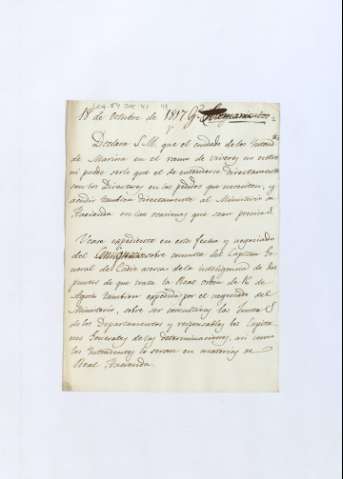 18 de Octubre de 1817
Declara S.M. que el cuidado de los Intend.tes
de Marina en el ramo de viveres no es otro
ni puede serlo que el de entenderse directamente
con los Directores en los pedidos que necesiten, y
acudir tambien directamente al Ministerio de
Hacienda en las ocasiones que sean precisas.
Vease expediente en esta fecha y negociado
del sobre consulta del Capitan Ge
neral de Cadiz acerca de la inteligencia de dos
puntos de que trata la Real orden de 12 de
Agosto tambien expedida por el negociado del
Ministerio, sobre ser consultivas las Juntas
de los Departamentos y responsables los Capita
nes Generales de sus determinaciones, asi como
los Intendentes lo seran en materias de
Real Hacienda.